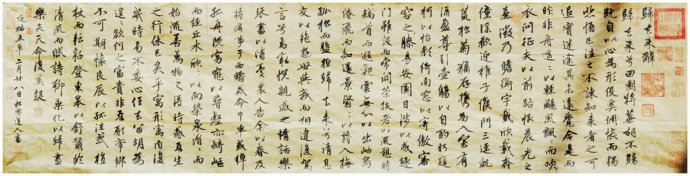 歸去來辭
歸去來兮田園將蕪胡不歸
既自以心為形役奚惆悵而獨
悲悟已往之不諫知來者之可
追實迷途其未遠覺今是而
昨非舟遙遙以輕颺風飄飄而吹
衣問征夫以前路恨晨光之
熹微乃瞻衡宇載欣載奔
僮僕歡迎稚子候門三逕就
荒松菊猶存攜幼入室有
酒盈尊引壺觴以自酌眄庭
柯以怡顏倚南窗以寄傲審
容膝之易安園日涉以成趣
門雖設而常關策扶老以流憩時
矯首而遐觀雲無心以出岫鳥
倦飛而知還景翳翳以將入撫
孤松而盤桓歸去來兮請息
交以絕遊世與我而相違復駕
言兮焉求悅親戚之情話樂
琴書以消憂農人告余以春及
將有事乎西疇或命巾車或棹
孤舟既窈窕以尋壑亦崎嶇
而經丘木欣欣以向榮泉涓涓而
始流善萬物之得時感吾生
之行休已矣乎寓形宇內復
幾時曷不委心任去留胡為
遑遑欲何之富貴非吾願帝鄉
不可期懷良辰以孤往或植
杖而耘耔登東皋以舒嘯臨
清流而賦詩聊乘化以歸盡
樂夫天命復奚疑
延祐五年二月廿一日松雪道人書